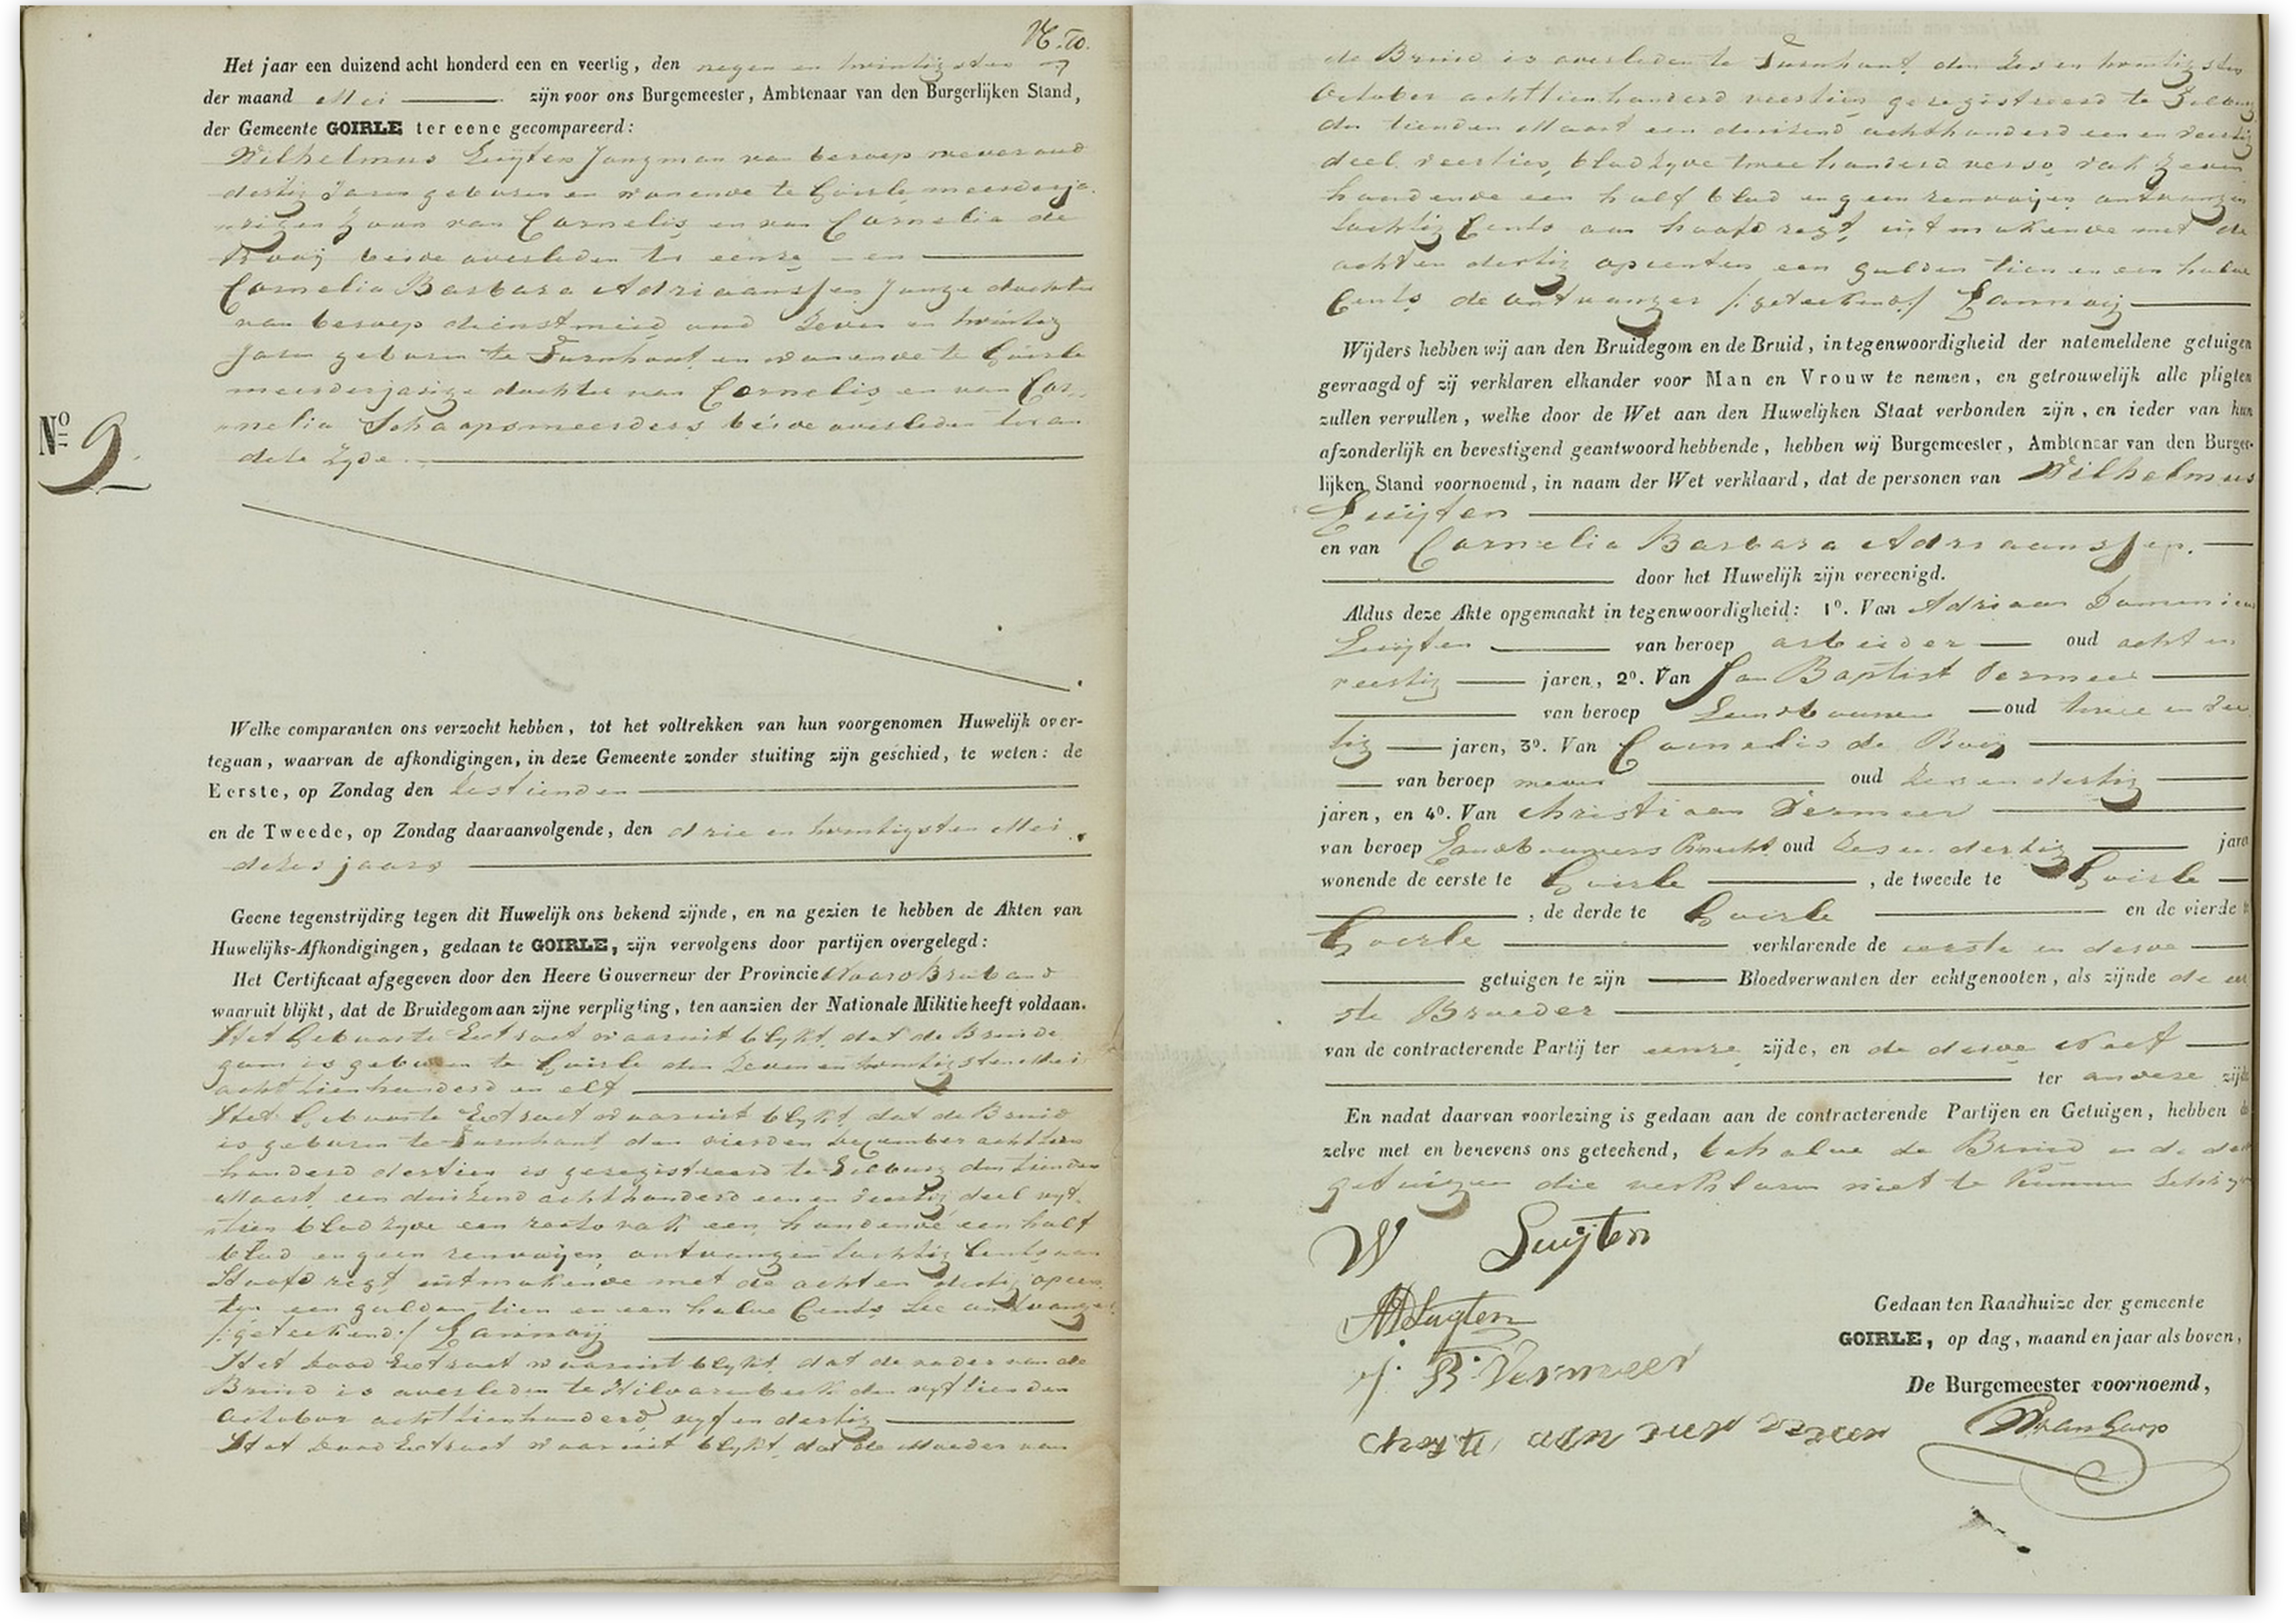 Het jaar een duizend acht honderd een en veertig, den negen en twintigsten
der maand Mei zijn voor ons Burgemeester, Ambtenaar van den Burgerlijken Stand,
der Gemeente GOIRLE ter eene gecompareerd:
Wilhelmus Luijten Jongman van beroep wever oud
dertig Jaren geboren en wonende te Goirle meerderja-
rigen zoon van Cornelis en van Cornelia de
Rooij beide overleden ter eenre en
Cornelia Barbara Adriaanssen Jonge dochter
van beroep dienstmeid oud zeven en twintig
Jaren geboren te Turnhout en wonende te Goirle
meerderjarige dochter van Cornelis en van Cor-
nelia Schaapsmeerders beide overleden ter an
dere zyde.
No 9.
Welke comparanten ons verzocht hebben, tot het voltrekken van hun voorgenomen Huwelijk over-
tegaan, waarvan de afkondigingen, in deze Gemeente zonder stuiting zijn geschied, te weten: de
Eerste, op Zondag den zestienden
en de Tweede, op Zondag daaraanvolgende, den drie en twintigsten Mei
dezes jaars
Geene tegenstrijding tegen dit Huwelijk ons bekend zijnde, en na gezien te hebben de Akten van
Huwelijks-Afkondigingen, gedaan te GOIRLE, zijn vervolgens door partijen overgelegd:
Het Certificaat afgegeven door den Heere Gouverneur der Provincie Noord Braband
waaruit blijkt, dat de Bruidegom aan zijne verpligting, ten aanzien der Nationale Militie heeft voldaan.
Het Geboorte Extract waaruit blykt, dat de Bruide
gom is geboren te Goirle den zeven en twintigsten Mei
achttienhonderd en elf
Het Geboorte Extract waaruit blykt, dat de Bruid
is geboren te Turnhout den vierden december achttien
honderd dertien is geregistreerd te Tilburg den tienden
Maart een duizend achthonderd een en veertig deel vyf-
tien bladzyde een recto vak een houdende een half
blad en geen renvoijen ontvangen tachtig Cents aan
Hoofd regt, uitmakende met de acht en dertig opcen
ten een gulden tien en een halve Cents de ontvanger
/:geteekend:/ Lannoij
Het dood Extract waaruit blykt, dat de vader van de
Bruid is overleden te Hilvarenbeek den vyftienden
October achttienhonderd vyf en dertig
Het dood Extract waaruit blykt, dat de Moeder van
de Bruid is overleden te Turnhout den zes en twintigsten
October achttienhonderd veertien geregistreerd te Tilburg
den tienden Maart een duizend achthonderd een en veertig
deel veertien, bladzyde twee honderd verso, vak zeven
houdende een half blad en geen renvoijen ontvangen
tachtig Cents aan hoofd regt, uitmakende met de
acht en dertig opcenten een gulden tien en een halve
Cents de ontvanger /:geteekend:/ Lannoij
Wijders hebben wij aan den Bruidegom en de Bruid, in tegenwoordigheid der natemeldene getuigen
gevraagd of zij verklaren elkander voor Man en Vrouw te nemen, en getrouwelijk alle pligten
zullen vervullen, welke door de Wet aan den Huwelijken Staat verbonden zijn, en ieder van hun
afzonderlijk en bevestigend geantwoord hebbende, hebben wij Burgemeester, Ambtenaar van den Burger-
lijken Stand voornoemd, in naam der Wet verklaard, dat de personen van Wilhelmus
Luijten
en van Cornelia Barbara Adriaanssen.
door het Huwelijk zijn vereenigd.
Aldus deze Akte opgemaakt in tegenwoordigheid: 1o. Van Adriaan Domenicus
Luijten van beroep arbeider oud acht en
veertig jaren, 2o. Van Jan Baptist Vermeer
van beroep Landbouwer oud twee en
tig jaren, 3o. Van Cornelis de Rooij
van beroep wever oud zes en dertig
jaren, en 4o. Van Christiaan Vermeer
van beroep Landbouwers Knecht oud zes en dertig jaren
wonende de eerste te Goirle, de tweede te Goirle
, de derde te Goirle en de vierde te
Goirle verklarende de eerste en derde
getuigen te zijn Bloedverwanten der echtgenooten, als zijnde de eer
ste Broeder
van de contracterende Partij ter eenre zijde, en de derde Neef
ter andere zijde
En nadat daarvan voorlezing is gedaan aan de contracterende Partijen en Getuigen, hebben de
zelve met en benevens ons geteekend, behalve de Bruid en de derde
getuigen die verklaren niet te kunnen schryven
W Luijten
AD Luyten
J. B. Vermeer
Gedaan ten Raadhuize der gemeente
GOIRLE, op dag, maand en jaar als boven,
De Burgemeester voornoemd,